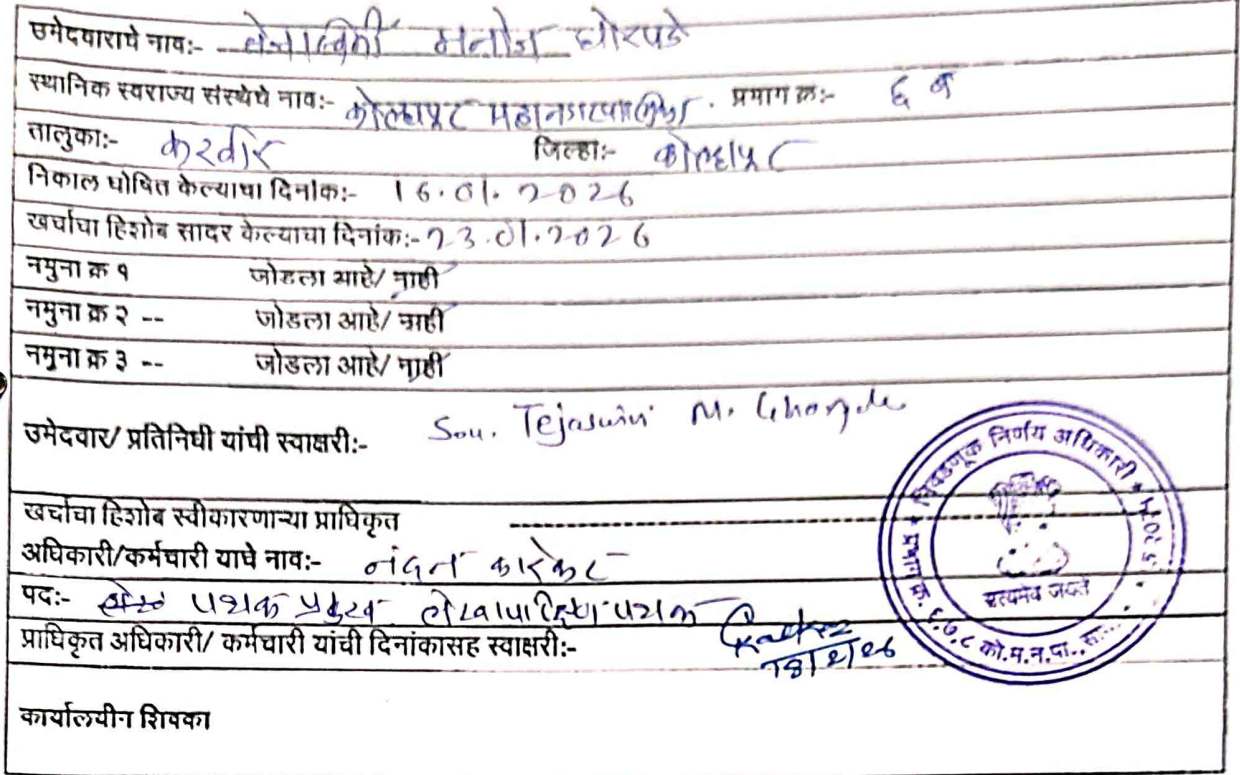 उमेदवाराचे नाव:- तेजस्विनी मनोज घोरपडे
स्थानिक स्वराज्य संस्थेचे नाव:- कोल्हापूर महानगरपालिका. प्रभाग क्र:- ६ ब
तालुका:- करवीर जिल्हा:- कोल्हापूर
निकाल घोषित केल्याचा दिनांक:- 16.01.2026
खर्चाचा हिशोब सादर केल्याचा दिनांक:- 23.01.2026
नमुना क्र १ जोडला आहे/ नाही
नमुना क्र २ -- जोडला आहे/ नाही
नमुना क्र ३ -- जोडला आहे/ नाही
उमेदवार/ प्रतिनिधी यांची स्वाक्षरी:- Sou. Tejaswini M. Ghorpade
खर्चाचा हिशोब स्वीकारणाऱ्या प्राधिकृत
अधिकारी/कर्मचारी याचे नाव:- नंदन कारेकर
पदः- पथक प्रमुख लेखापरिक्षण पथक
प्राधिकृत अधिकारी/ कर्मचारी यांची दिनांकासह स्वाक्षरी:-
कार्यालयीन शिक्का
निवडणूक निर्णय अधिकारी
प्रभाग क्र. ६,७,८ को.म.न.पा.
सत्यमेव जयते